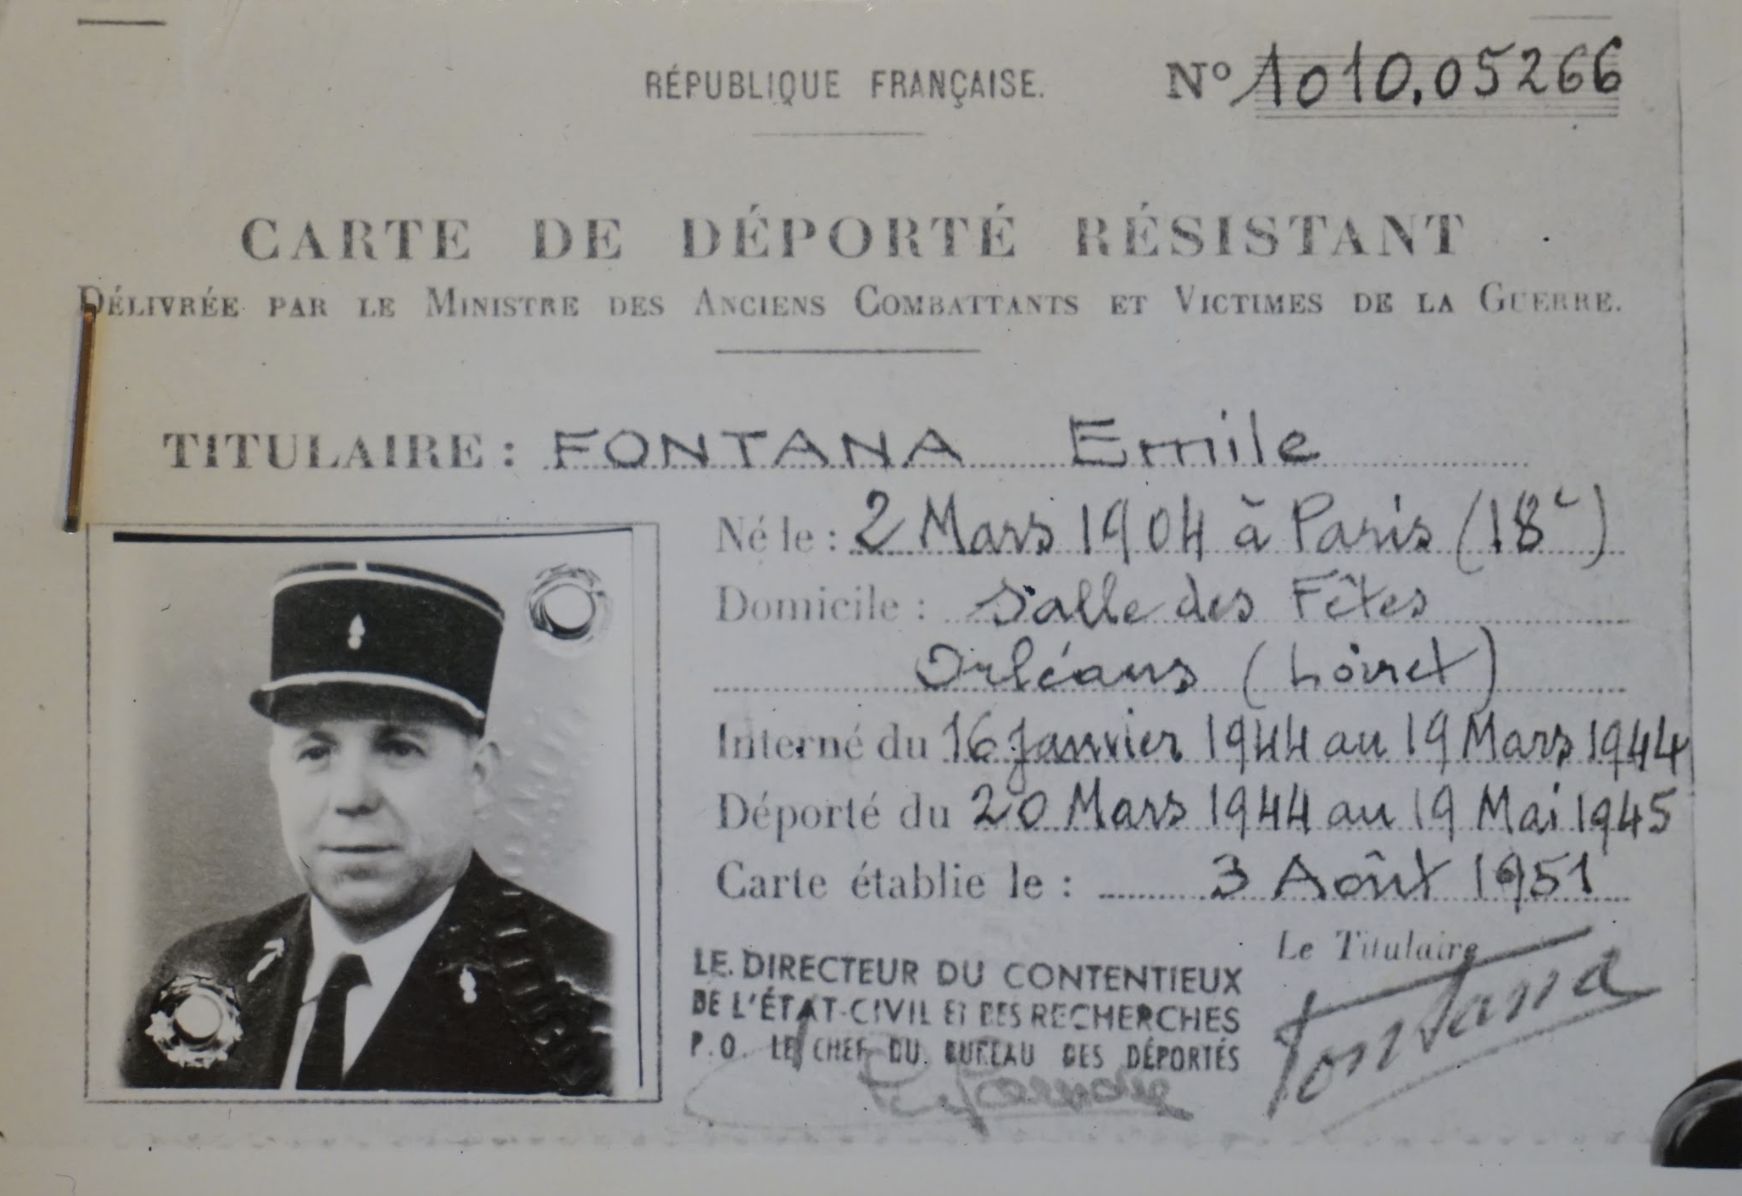 RÉPUBLIQUE FRANÇAISE.
Nº 1010.05266
CARTE DE DÉPORTÉ RÉSISTANT
DÉLIVRÉE PAR LE MINISTRE DES ANCIENS COMBATTANTS ET VICTIMES DE LA GUERRE.
TITULAIRE : FONTANA Emile
Né le : 2 Mars 1904 à Paris (18e)
Domicile : Salle des Fêtes
Orléans (Loiret)
Interné du 16 janvier 1944 au 19 Mars 1944
Déporté du 20 Mars 1944 au 19 Mai 1945
Carte établie le : 3 Août 1951
Le Titulaire
LE DIRECTEUR DU CONTENTIEUX
DE L'ÉTAT-CIVIL ET DES RECHERCHES
P.O. LE CHEF DU BUREAU DES DÉPORTÉS
Fontana